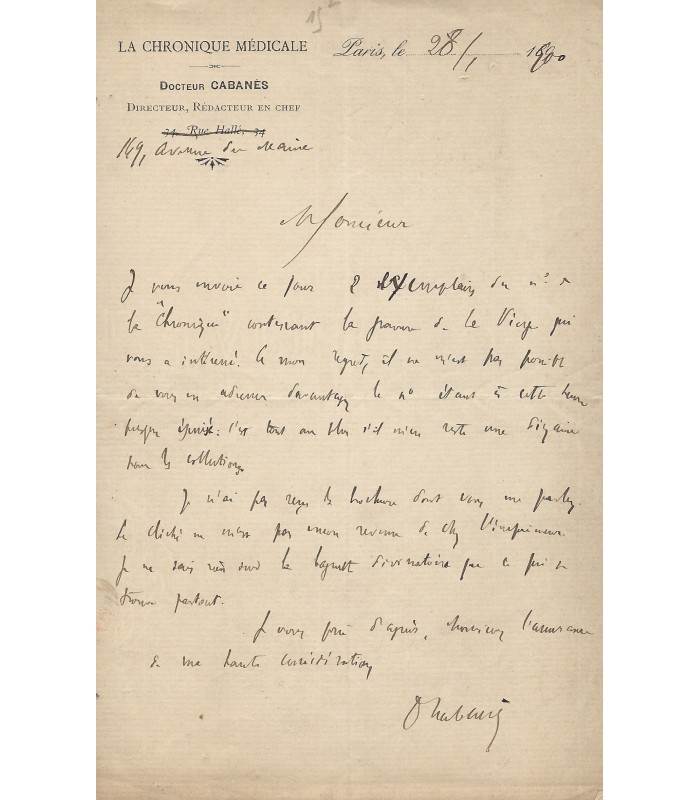 15
LA CHRONIQUE MÉDICALE
Paris, le 28/1 1900
DOCTEUR CABANÈS
DIRECTEUR, RÉDACTEUR EN CHEF
34, Rue Hallé, 34
149, Avenue du Maine
Monsieur
Je vous envoie ce jour 2 exemplaires du n° de
la "Chronique" contenant la gravure de Le Vierge qui
vous a intéressé. à mon regret, il ne m'est pas possible
de vous en adresser davantage le n° étant à cette heure
presque épuisé: c'est tout au plus s'il m'en reste une dizaine
pour les collections.
Je n'ai pas reçu la brochure dont vous me parlez.
Le cliché ne m'est pas encore revenu de chez l'imprimeur
Je ne sais rien sur la baguette divinatoire que ce qui se
trouve partout.
Je vous prie d'agréer, Monsieur, l'assurance
de ma haute considération
Dr Cabanès